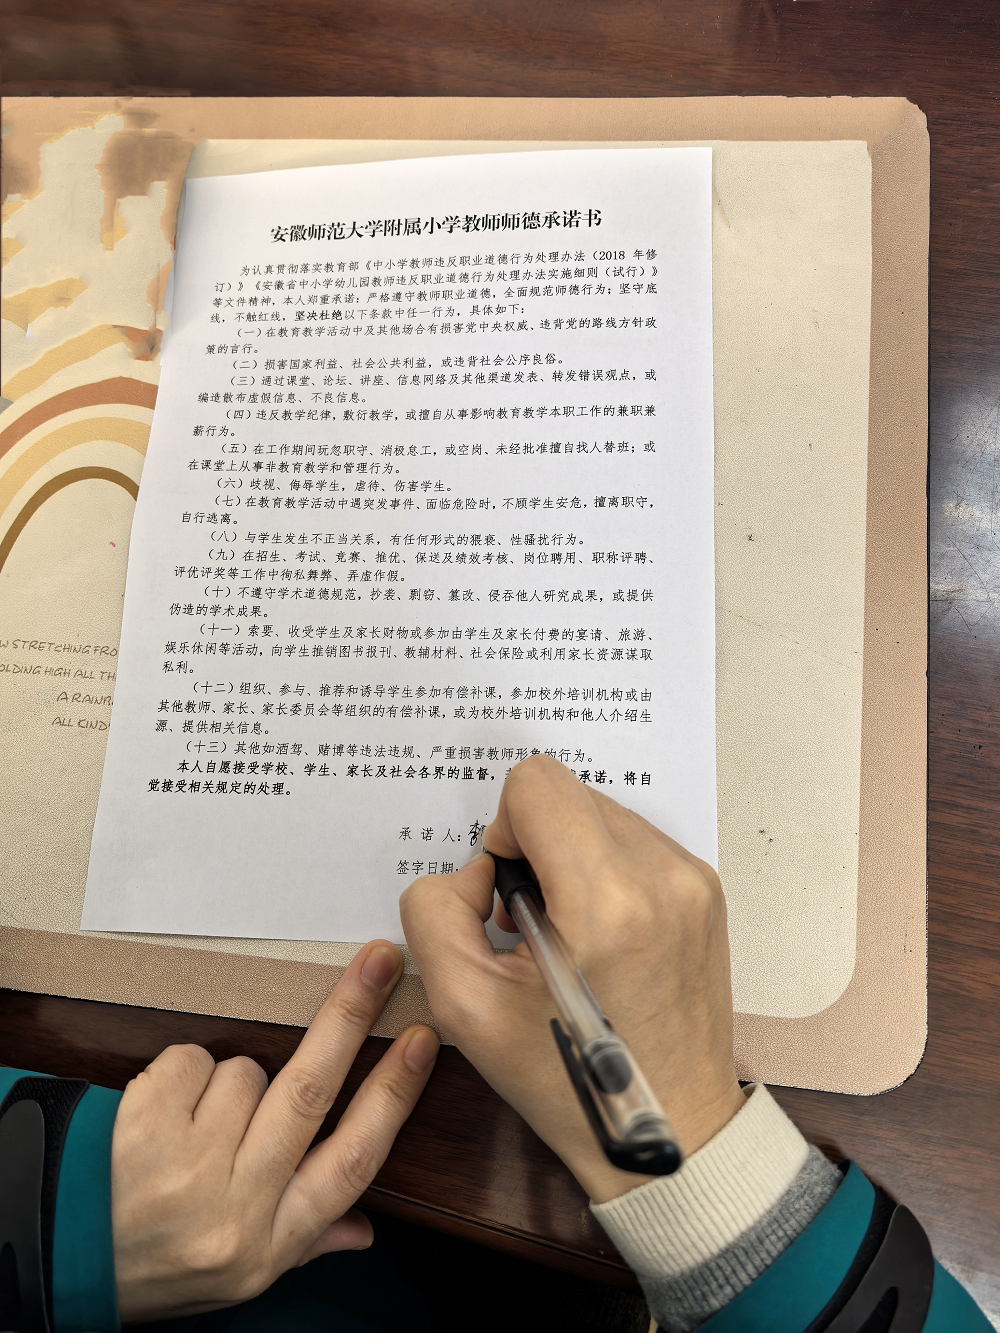 安徽师范大学附属小学教师师德承诺书
为认真贯彻落实教育部《中小学教师违反职业道德行为处理办法（2018 年修
订）》《安徽省中小学幼儿园教师违反职业道德行为处理办法实施细则（试行）》
等文件精神，本人郑重承诺：严格遵守教师职业道德，全面规范师德行为；坚守底
线，不触红线，坚决杜绝以下条款中任一行为，具体如下：
（一）在教育教学活动中及其他场合有损害党中央权威、违背党的路线方针政
策的言行。
（二）损害国家利益、社会公共利益，或违背社会公序良俗。
（三）通过课堂、论坛、讲座、信息网络及其他渠道发表、转发错误观点，或
编造散布虚假信息、不良信息。
（四）违反教学纪律，敷衍教学，或擅自从事影响教育教学本职工作的兼职兼
薪行为。
（五）在工作期间玩忽职守、消极怠工，或空岗、未经批准擅自找人替班；或
在课堂上从事非教育教学和管理行为。
（六）歧视、侮辱学生，虐待、伤害学生。
（七）在教育教学活动中遇突发事件、面临危险时，不顾学生安危，擅离职守，
自行逃离。
（八）与学生发生不正当关系，有任何形式的猥亵、性骚扰行为。
（九）在招生、考试、竞赛、推优、保送及绩效考核、岗位聘用、职称评聘、
评优评奖等工作中徇私舞弊、弄虚作假。
（十）不遵守学术道德规范，抄袭、剽窃、篡改、侵吞他人研究成果，或提供
伪造的学术成果。
（十一）索要、收受学生及家长财物或参加由学生及家长付费的宴请、旅游、
娱乐休闲等活动，向学生推销图书报刊、教辅材料、社会保险或利用家长资源谋取
私利。
（十二）组织、参与、推荐和诱导学生参加有偿补课，参加校外培训机构或由
其他教师、家长、家长委员会等组织的有偿补课，或为校外培训机构和他人介绍生
源、提供相关信息。
（十三）其他如酒驾、赌博等违法违规、严重损害教师形象的行为。
本人自愿接受学校、学生、家长及社会各界的监督，承诺，将自
觉接受相关规定的处理。
承 诺 人：
签字日期：
STRETCHING FRO
OLDING HIGH ALL TH
A RAINB
ALL KIND